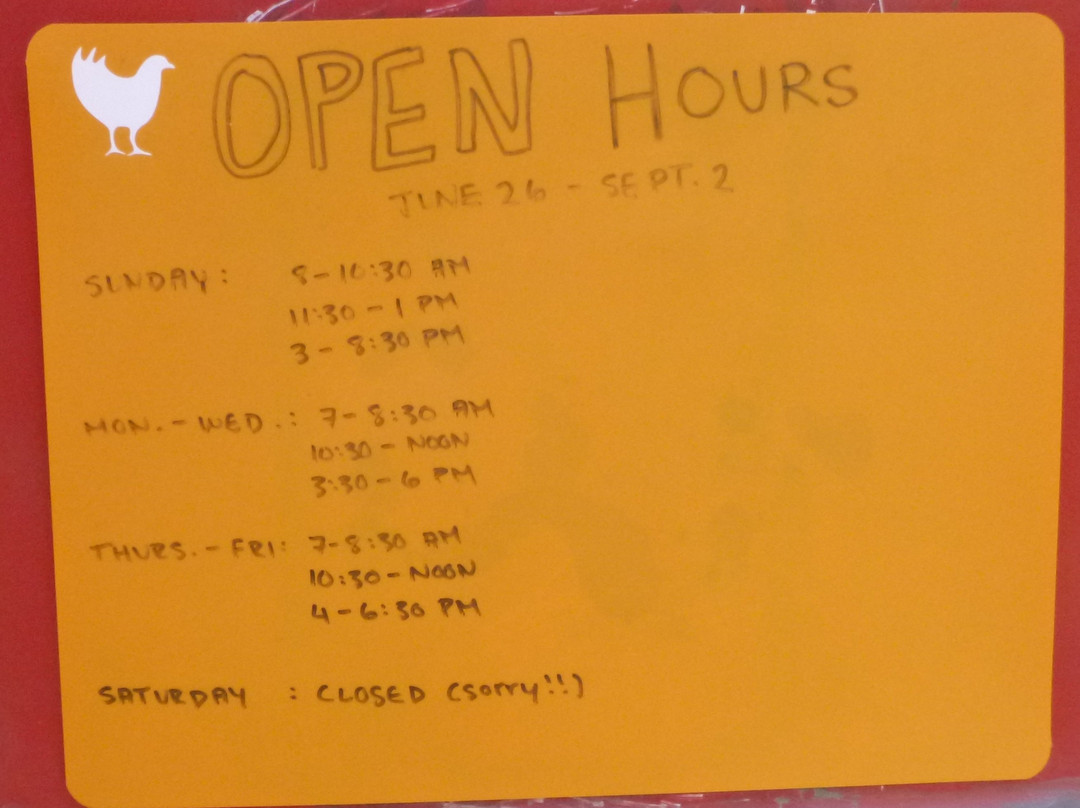 OPEN HOURS
JUNE 26 - SEPT. 2
SUNDAY: 8-10:30 AM
11:30 - 1 PM
3 - 8:30 PM
MON. - WED.: 7-8:30 AM
10:30 - NOON
3:30 - 6 PM
THURS. - FRI: 7-8:30 AM
10:30 - NOON
4 - 6:30 PM
SATURDAY : CLOSED (sorry!!)